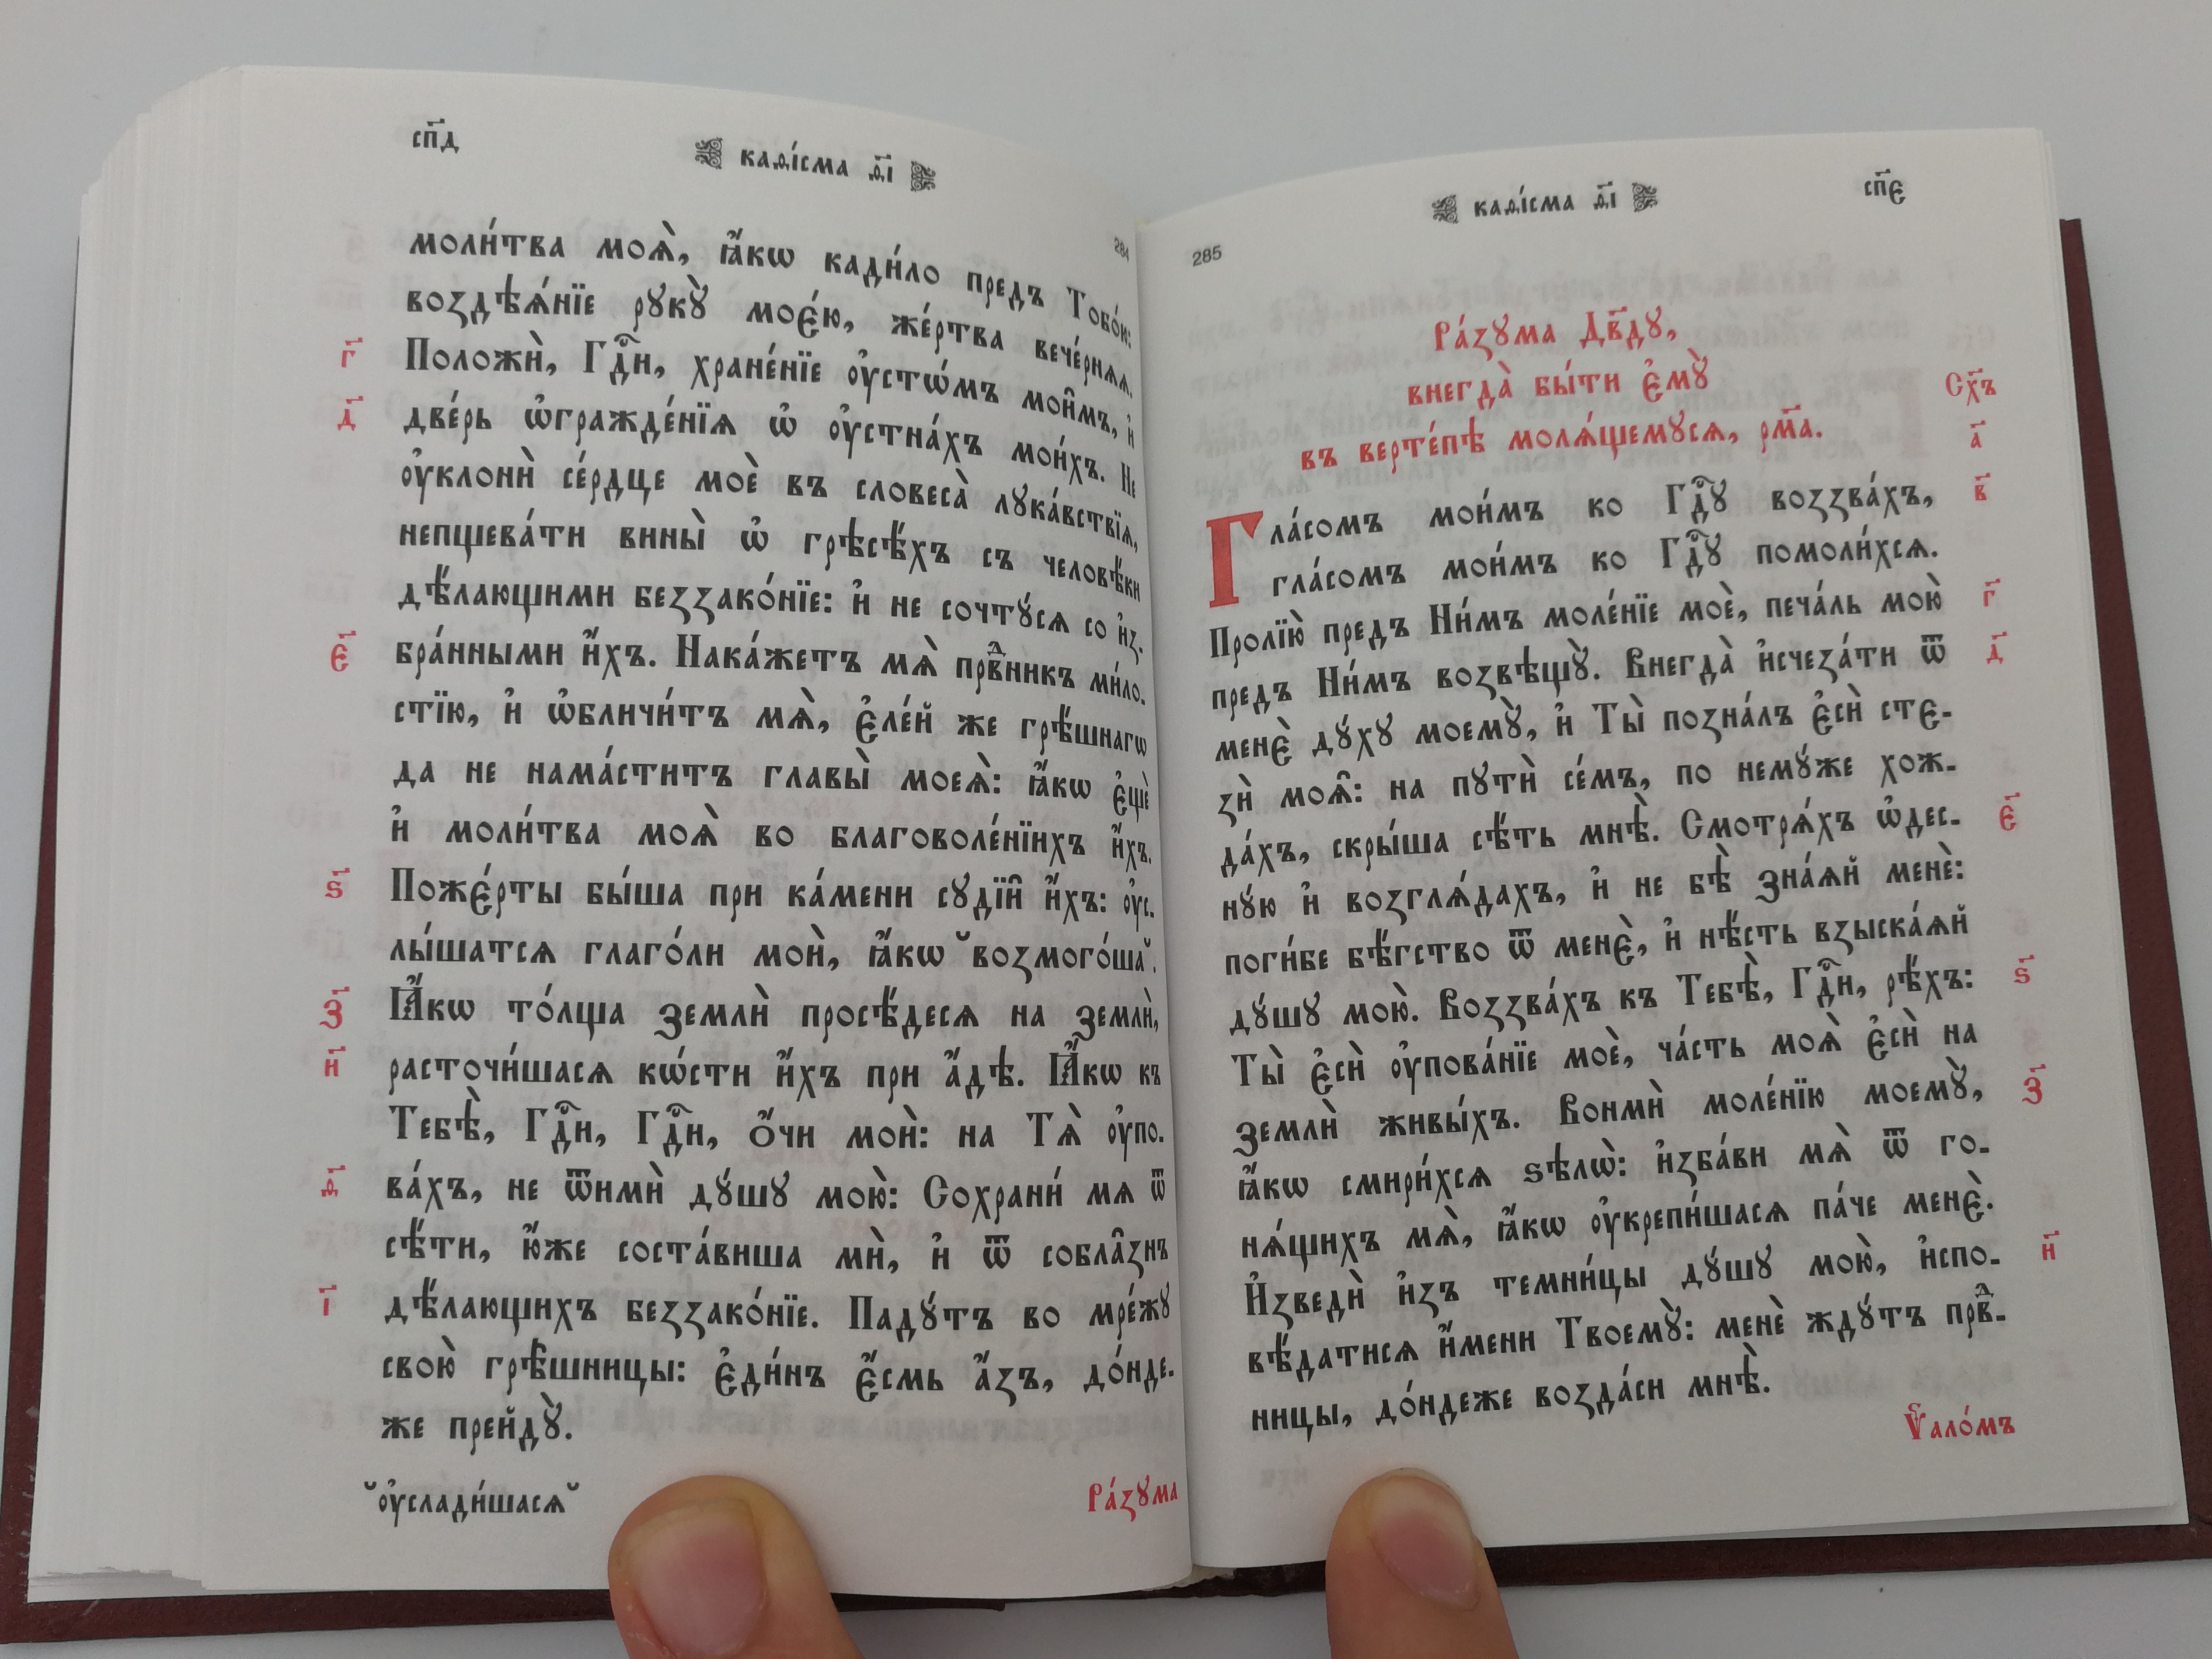 сп҃д
каѳі́сма ѳ҃і
284
моли́тва моѧ̀, ꙗ҆́кѡ кади́ло предъ Тобо́ю:
воздѣѧ́нїе рꙋкꙋ̀ моє́ю, же́ртва вече́рнѧѧ.
г҃ Положѝ, Гдⷭ҇и, хране́нїе ѹ҆стѡ́мъ мои̑мъ, и҆
д҃ две́рь ѡ҆гражде́нїѧ ѡ҆ ѹ҆стна́хъ мои́хъ. Не
ѹ҆клонѝ се́рдце моѐ въ словеса̀ лꙋка́вствїѧ,
непщева́ти вины̀ ѡ҆ грѣсѣ́хъ съ человѣ́ки
дѣ́лающими беззако́нїе: и҆ не сочтꙋ́сѧ со и҆з.
є҃ бра́нными и҆́хъ. Нака́жетъ мѧ̀ првⷣникъ ми́ло.
стїю, и҆ ѡ҆бличи́тъ мѧ̀, є҆ле́й же грѣ́шнагѡ
да не нама́ститъ главы̀ моеѧ̀: ꙗ҆́кѡ є҆щѐ
и҆ моли́тва моѧ̀ во благоволе́нїихъ и҆́хъ.
ѕ҃ Пожє́рты бы́ша при ка́мени сꙋдїи̑ и҆́хъ: ѹ҆с.
лы́шатсѧ глаго́ли моѝ, ꙗ҆́кѡ ˘возмого́ша˘.
з҃ Ꙗ҆́кѡ то́лща землѝ просѣ́десѧ на землѝ,
и҃ расточи́шасѧ кѡ́сти и҆́хъ при а҆́дѣ. Ꙗ҆́кѡ къ
Тебѣ̀, Гдⷭ҇и, Гдⷭ҇и, ѻ҆́чи моѝ: на Тѧ̀ ѹ҆по.
ѳ҃ ва́хъ, не ѿимѝ дꙋ́шꙋ мою̀: Сохрани́ мѧ ѿ
сѣ́ти, ю҆́же соста́виша мѝ, и҆ ѿ собла̑знъ
і҃ дѣ́лающихъ беззако́нїе. Падꙋ́тъ во мре́жꙋ
свою̀ грѣ̑шницы: є҆ди́нъ є҆́смь а҆́зъ, до́нде.
же прейдꙋ̀.
˘ѹ҆слади́шасѧ˘
Ра́зꙋма
каѳі́сма ѳ҃і
сп҃є
285
Ра́зꙋма Дв҃дꙋ,
внегда̀ бы́ти є҆мꙋ̀
Сх҃ъ
въ верте́пѣ молѧ́щемꙋсѧ, рм҃а.
а҃
Гла́сомъ мои́мъ ко Гдⷭ҇ꙋ воззва́хъ, в҃
гла́сомъ мои́мъ ко Гдⷭ҇ꙋ помоли́хсѧ.
Пролїю̀ предъ Ни́мъ моле́нїе моѐ, печа́ль мою̀ г҃
предъ Ни́мъ возвѣщꙋ̀. Внегда̀ и҆счеза́ти ѿ д҃
менє̀ дꙋ́хꙋ моемꙋ̀, и҆ Ты̀ позна́лъ є҆сѝ стє-
зѝ моѧ̑: на пꙋтѝ се́мъ, по немꙋ́же хож-
да́хъ, скры́ша сѣ́ть мнѣ̀. Смотрѧ́хъ ѡ҆дес- є҃
нꙋ́ю и҆ возглѧ́дахъ, и҆ не бѣ̀ зна́ѧй менѐ:
поги́бе бѣ́гство ѿ менє̀, и҆ нѣ́сть взыска́ѧй
дꙋ́шꙋ мою̀. Воззва́хъ къ Тебѣ̀, Гдⷭ҇и, рѣ́хъ: ѕ҃
Ты̀ є҆сѝ ѹ҆пова́нїе моѐ, ча́сть моѧ̀ є҆сѝ на
землѝ живы́хъ. Вонмѝ моле́нїю моемꙋ̀, з҃
ꙗ҆́кѡ смири́хсѧ ѕѣлѡ̀: и҆зба́ви мѧ̀ ѿ го-
нѧ́щихъ мѧ̀, ꙗ҆́кѡ ѹ҆крепи́шасѧ па́че менє̀.
И҆зведѝ и҆зъ темни́цы дꙋ́шꙋ мою̀, и҆спо- и҃
вѣ́датисѧ и҆́мени Твоемꙋ̀: менѐ ждꙋ́тъ првⷣ-
ницы, до́ндеже возда́си мнѣ̀.
Ѱало́мъ